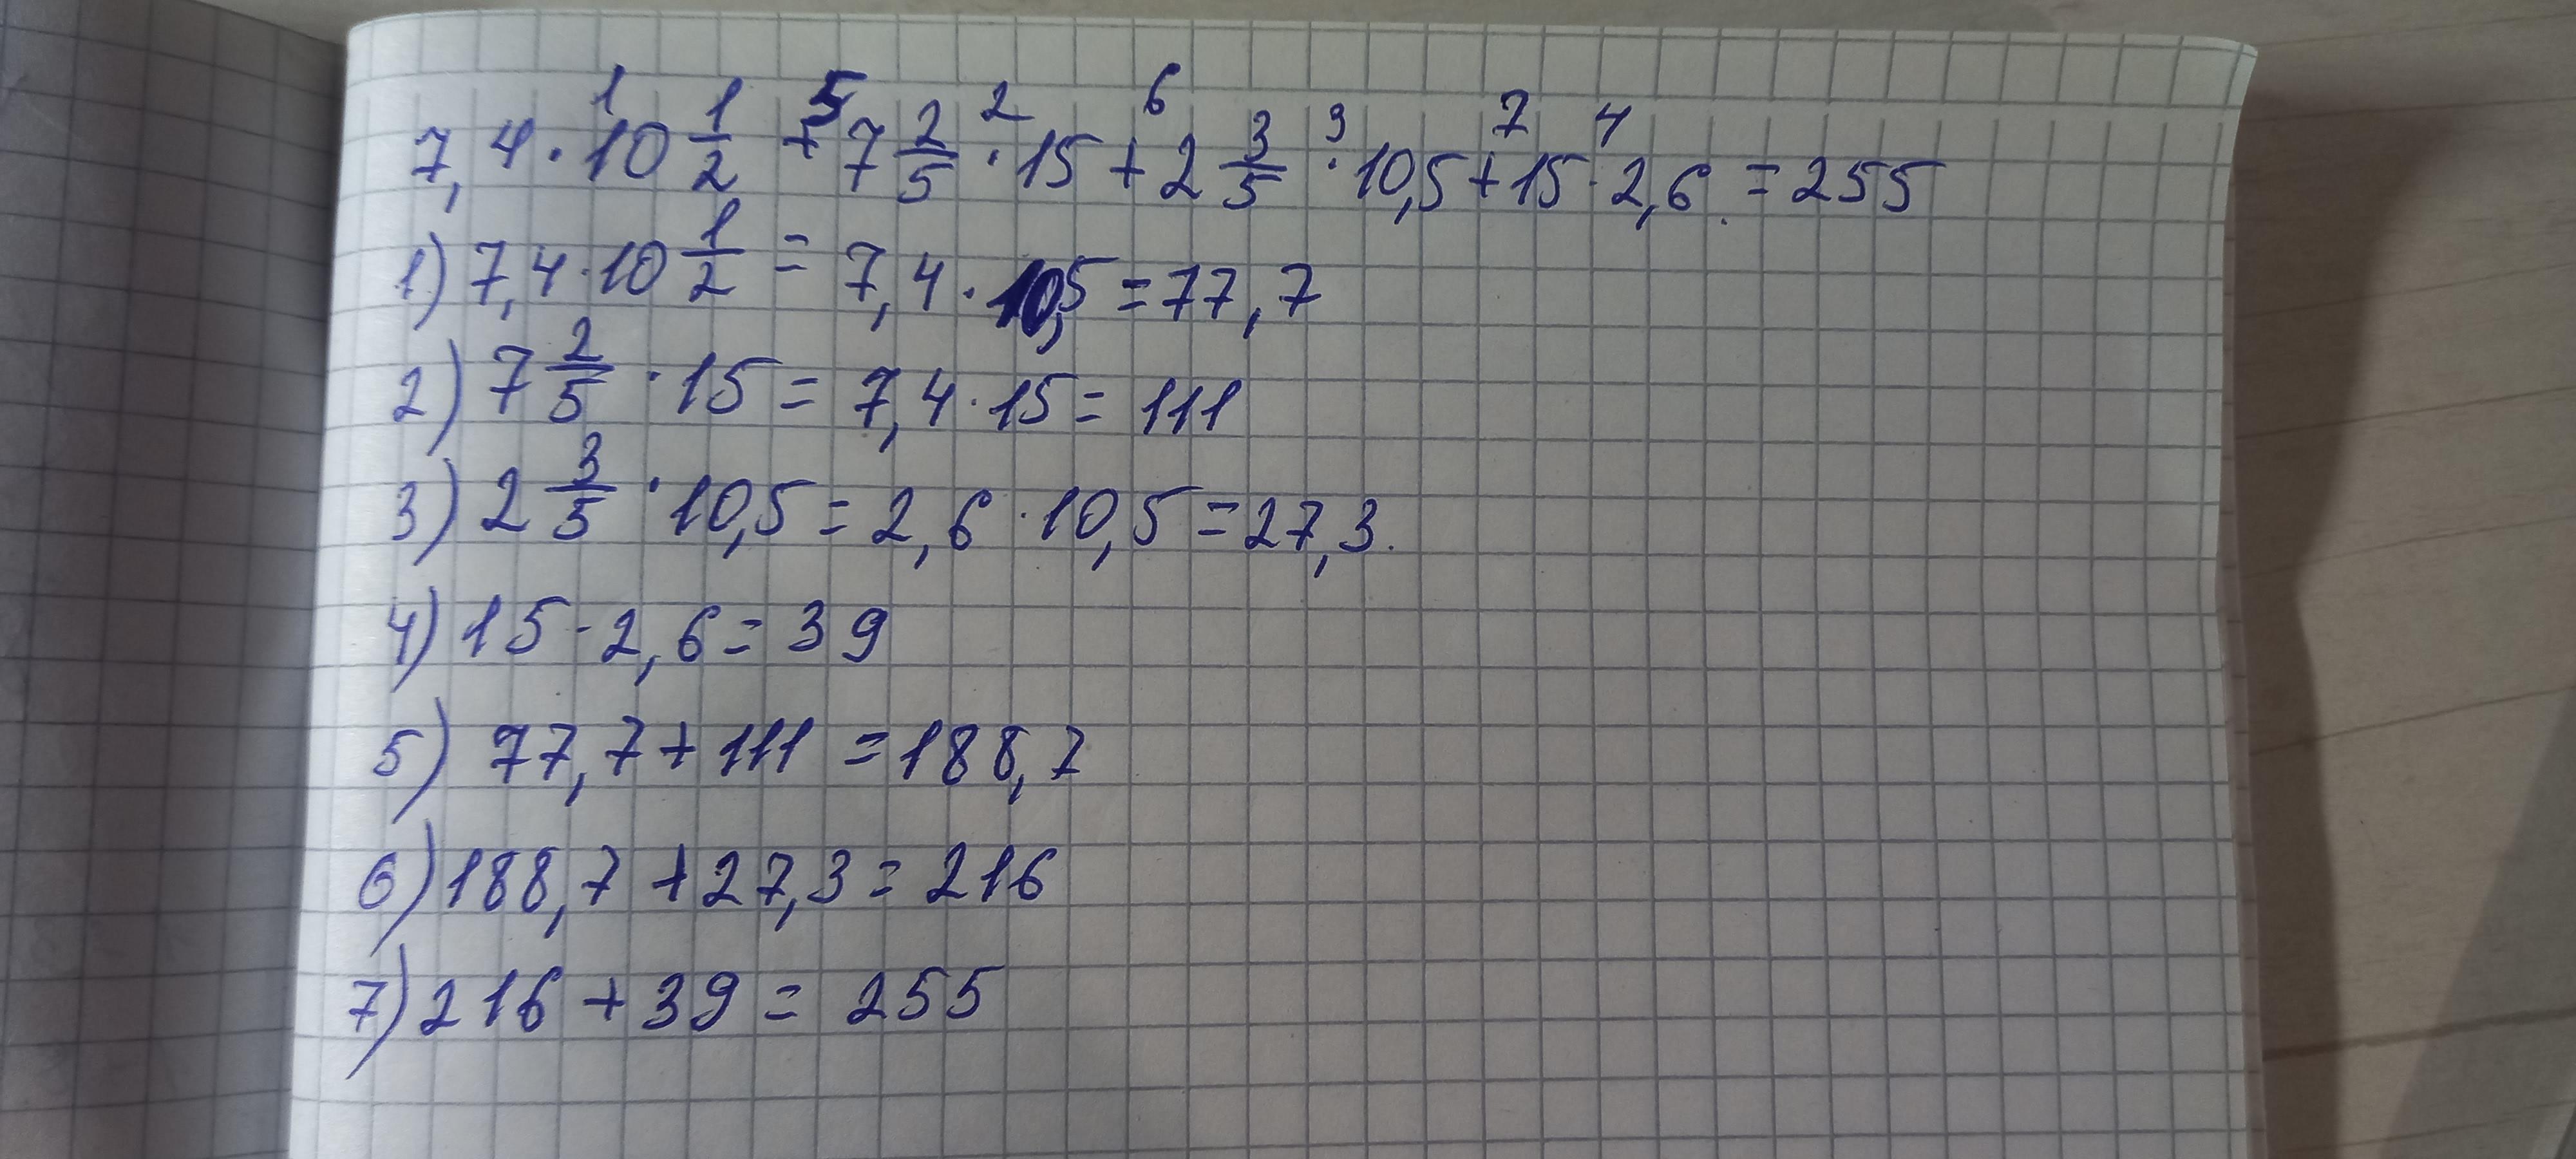 7,4 · 10 1/2 + 7 2/5 · 15 + 2 3/5 · 10,5 + 15 · 2,6 = 255
1) 7,4 · 10 1/2 = 7,4 · 10,5 = 77,7
2) 7 2/5 · 15 = 7,4 · 15 = 111
3) 2 3/5 · 10,5 = 2,6 · 10,5 = 27,3.
4) 15 · 2,6 = 39
5) 77,7 + 111 = 188,7
6) 188,7 + 27,3 = 216
7) 216 + 39 = 255